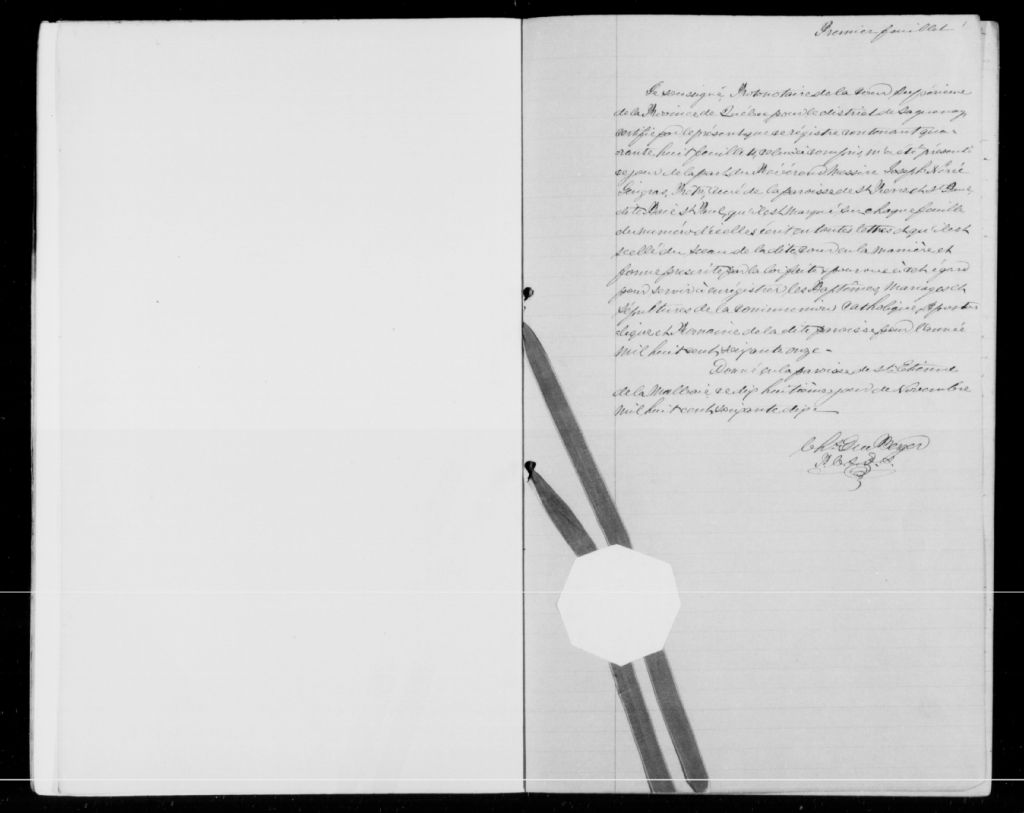 Premier feuillet
Le soussigné, Protonotaire de la Cour Supérieure
de la Province de Québec pour le district de Saguenay
certifie par le présent que ce régistre contenant qua-
rante huit feuillets, celui ci compris, m'a été présenté
ce jour de la part du Révérend Messire Joseph
Gingras, Ptre, Curé de la paroisse de St Pierre et St Paul
dite Baie St Paul, qu'il est marqué sur chaque feuille
du numéro d'icelles écrit en toutes lettres et qu'il est
scellé du sceau de la dite cour en la manière et
forme prescrite par la loi faite & pourvue à cet égard
pour servir à enrégistrer les Baptêmes, Mariages et
Sépultures de la communion Catholique, Aposto
lique et Romaine de la dite paroisse pour l'année
mil huit cent soixante onze -
Donné en la paroisse de St Etienne
de la Malbaie ce dix huitième jour de Novembre
mil huit cent soixante dix
Chs Du Berger
P. C. S. D. S.